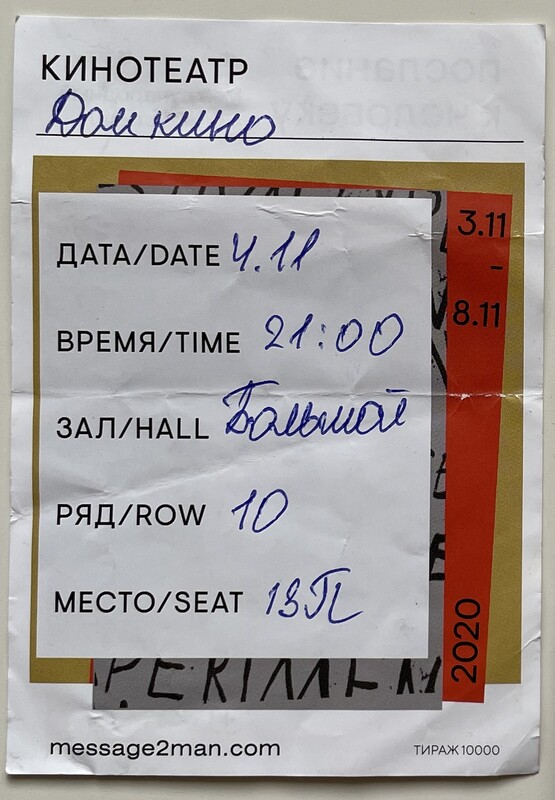 КИНОТЕАТР
Дом кино
ДАТА/DATE 4.11
3.11
–
8.11
ВРЕМЯ/TIME 21:00
ЗАЛ/HALL Большой
РЯД/ROW 10
МЕСТО/SEAT 13П
2020
PERIMEN
message2man.com
ТИРАЖ 10000